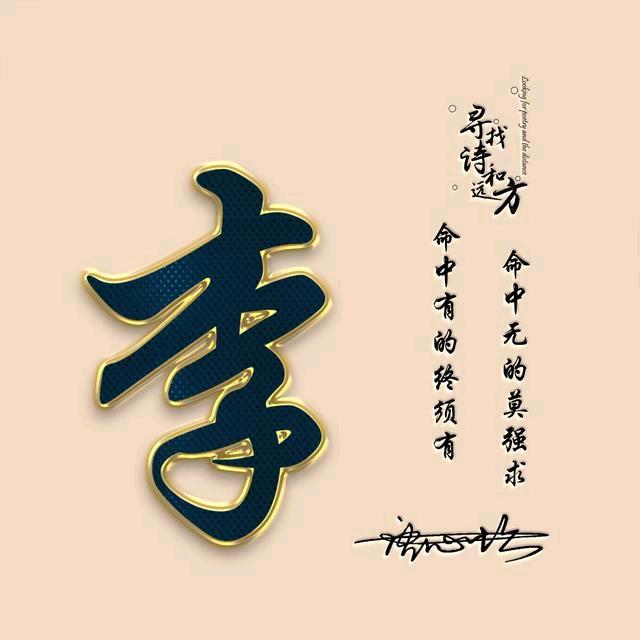 李
寻找诗和远方
Looking for poetry and the distance
命中有的终须有
命中无的莫强求